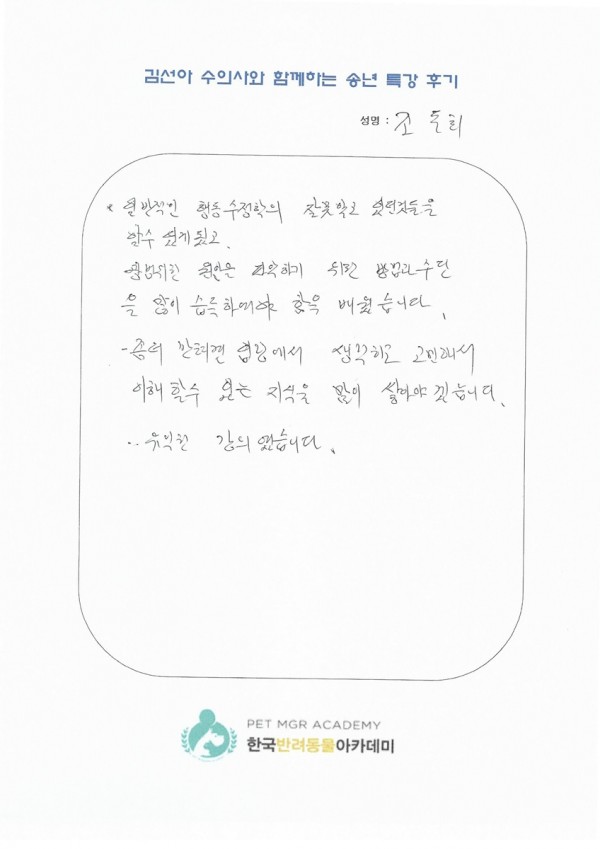 김선아 수의사와 함께하는 송년 특강 후기
성명 : 조 동희
* 일반적인 행동수정학의 잘못알고 있던것들을
알수 있게됐고,
광범위한 원인을 파악하기 위한 방법과 수단
을 많이 습득하여야 함을 배웠습니다.
- 좀더 반려견 입장에서 생각하고 고민해서
이해할수 있는 지식을 많이 쌓아야 겠습니다.
.. 유익한 강의였습니다.
PET MGR ACADEMY
한국반려동물아카데미